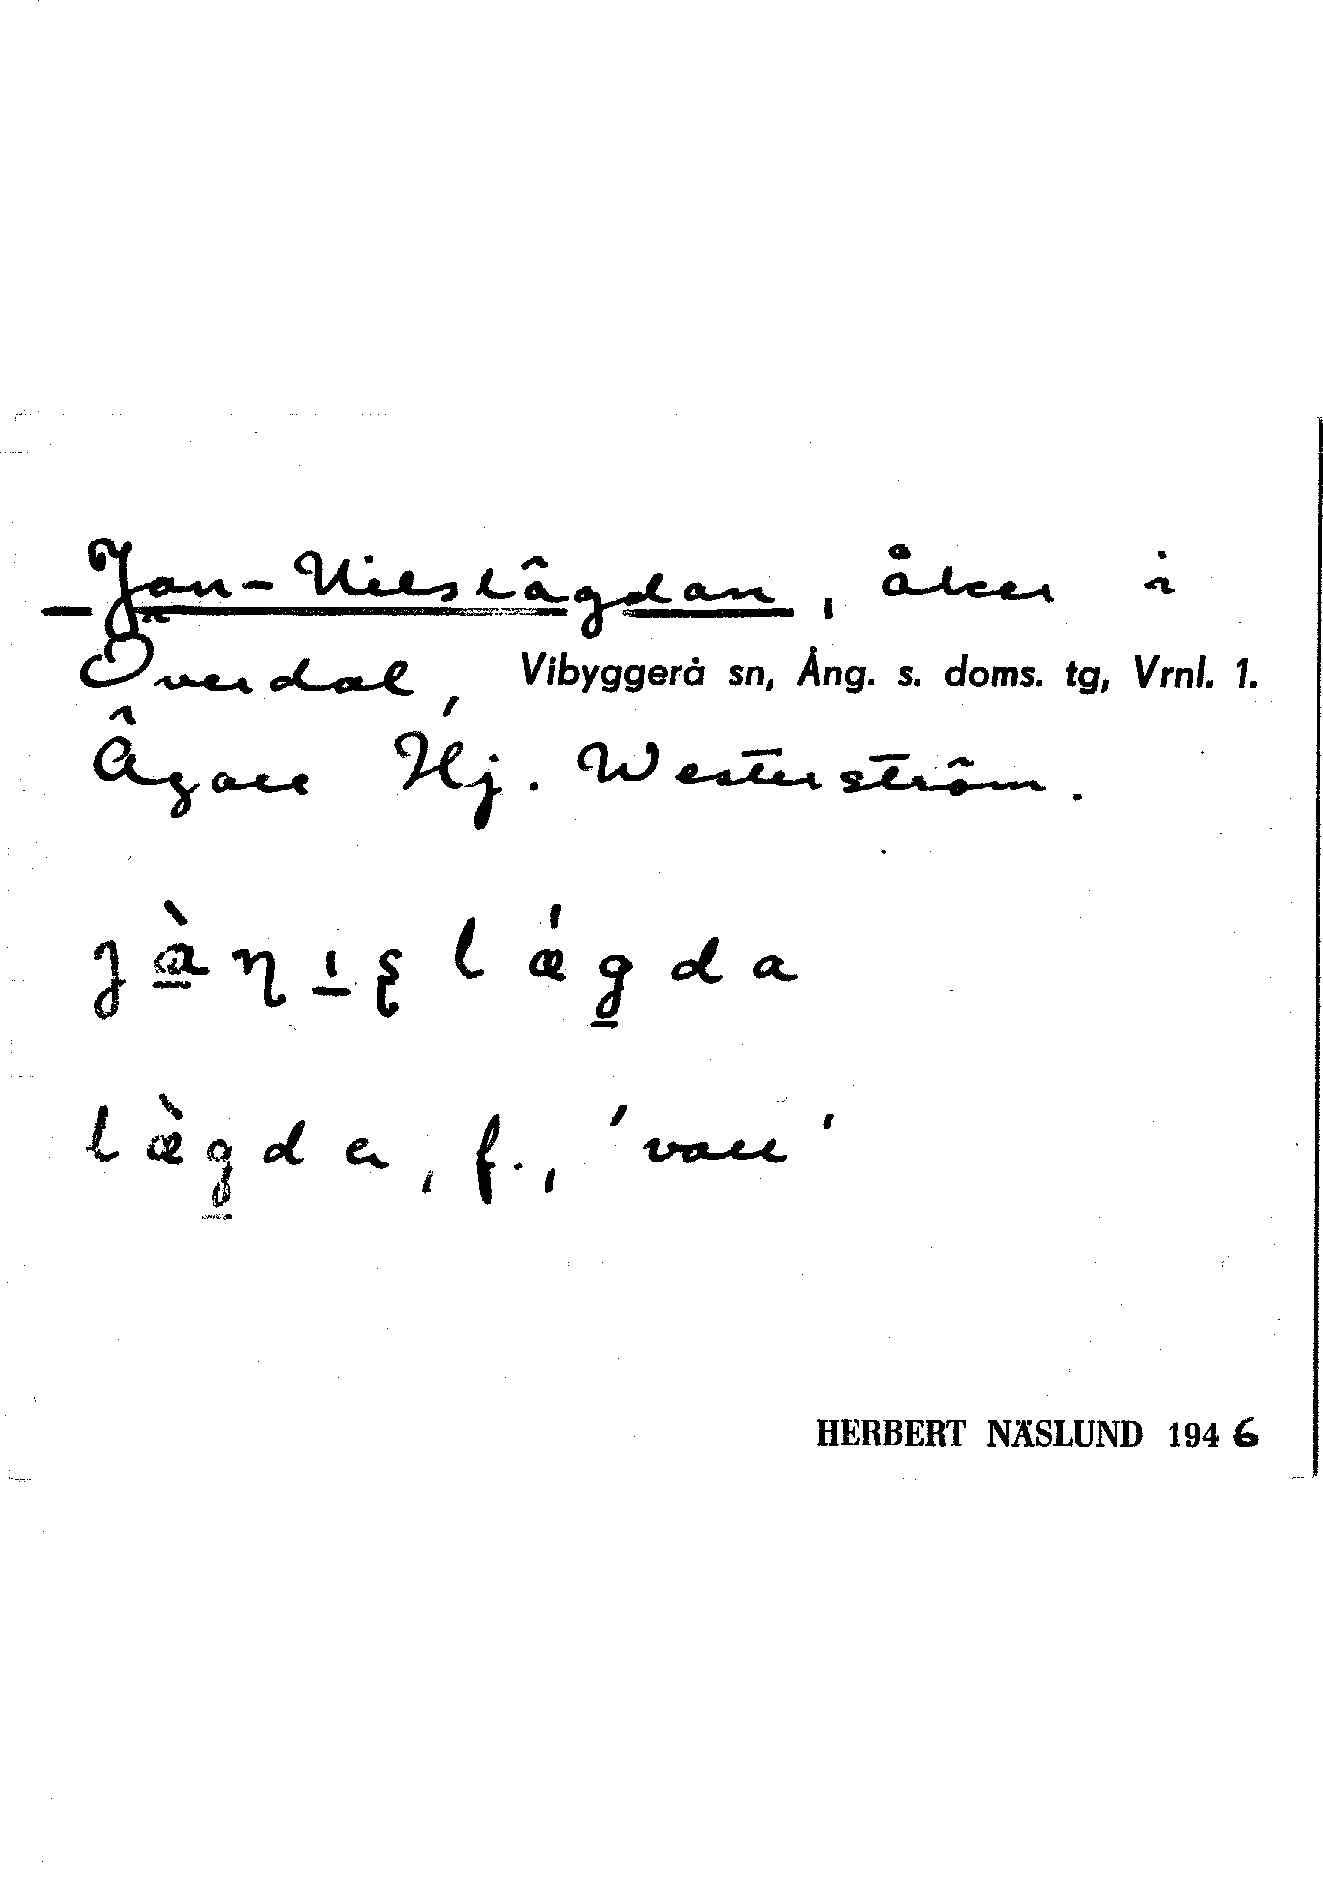 Jan-Nilslägdan, åker i
Överdal, Vibyggerå sn, Ång. s. doms. tg, Vrnl. 1.
Ägare Hj. Westerström.
jànιʂlǽgda
læ̀gda, f., 'vall'
HERBERT NÄSLUND 1946